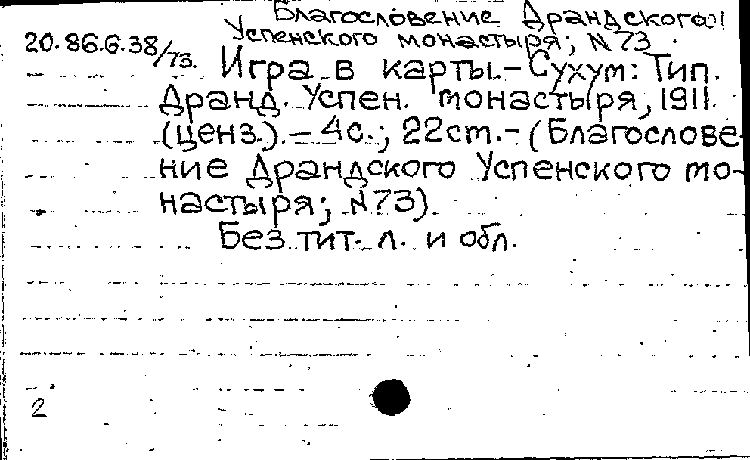 Благословение Драндского
Успенского монастыря; N 73
20.86.6.38/73.
Игра в карты.-Сухум: Тип.
Дранд. Успен. монастыря, 1911
(ценз.).-4с.; 22cm.-(Благослове-
ние Драндского Успенского мо-
настыря; N 73).
Без тит. л. и обл.
2